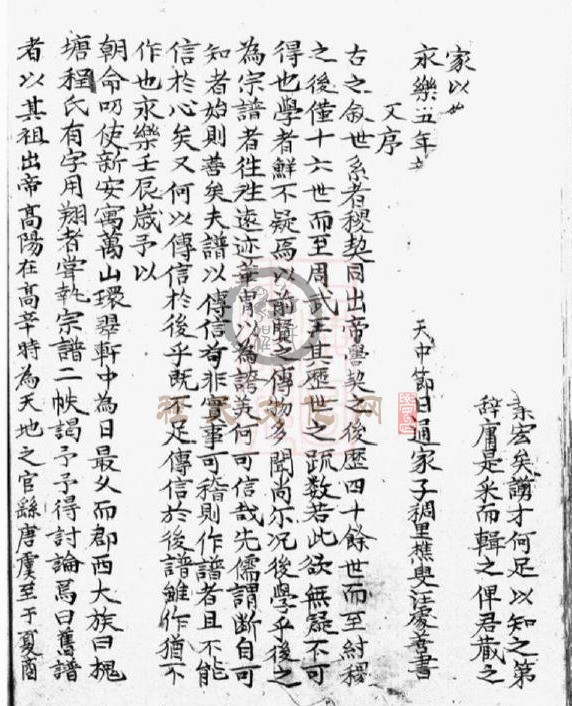 素宏矣謭才何足以知之第
辭庸是采而輯之俾君藏之
家以
永樂五年 天中節日通家子稠里樵叟汪處善書
又序
古之敘世系者稷契同出帝嚳契之後歷四十餘世而至紂稷
之後僅十六世而至周武王其歷世之踈数若此欲無疑不可
得也學者鮮不疑焉以前賢之傳物多聞尚尔况後學乎後之
為宗譜者徃徃遠迹華胄以為譜美何可信哉先儒謂断自可
知者始則善矣夫譜以傳信苟非實事可稽則作譜者且不能
信於心矣又何以傳信於後乎既不足傳信於後譜雖作猶不
作也永樂壬辰歲予以
朝命叨使新安寓萬山環翠軒中為日最久而郡西大族曰槐
塘程氏有字用翔者甞執宗譜二帙謁予予得討論焉曰舊譜
者以其祖出帝高陽在高辛時為天地之官繇唐虞至于夏商